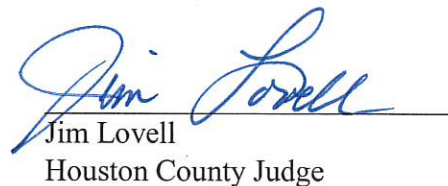 Jim Lovell
Jim Lovell
Houston County Judge